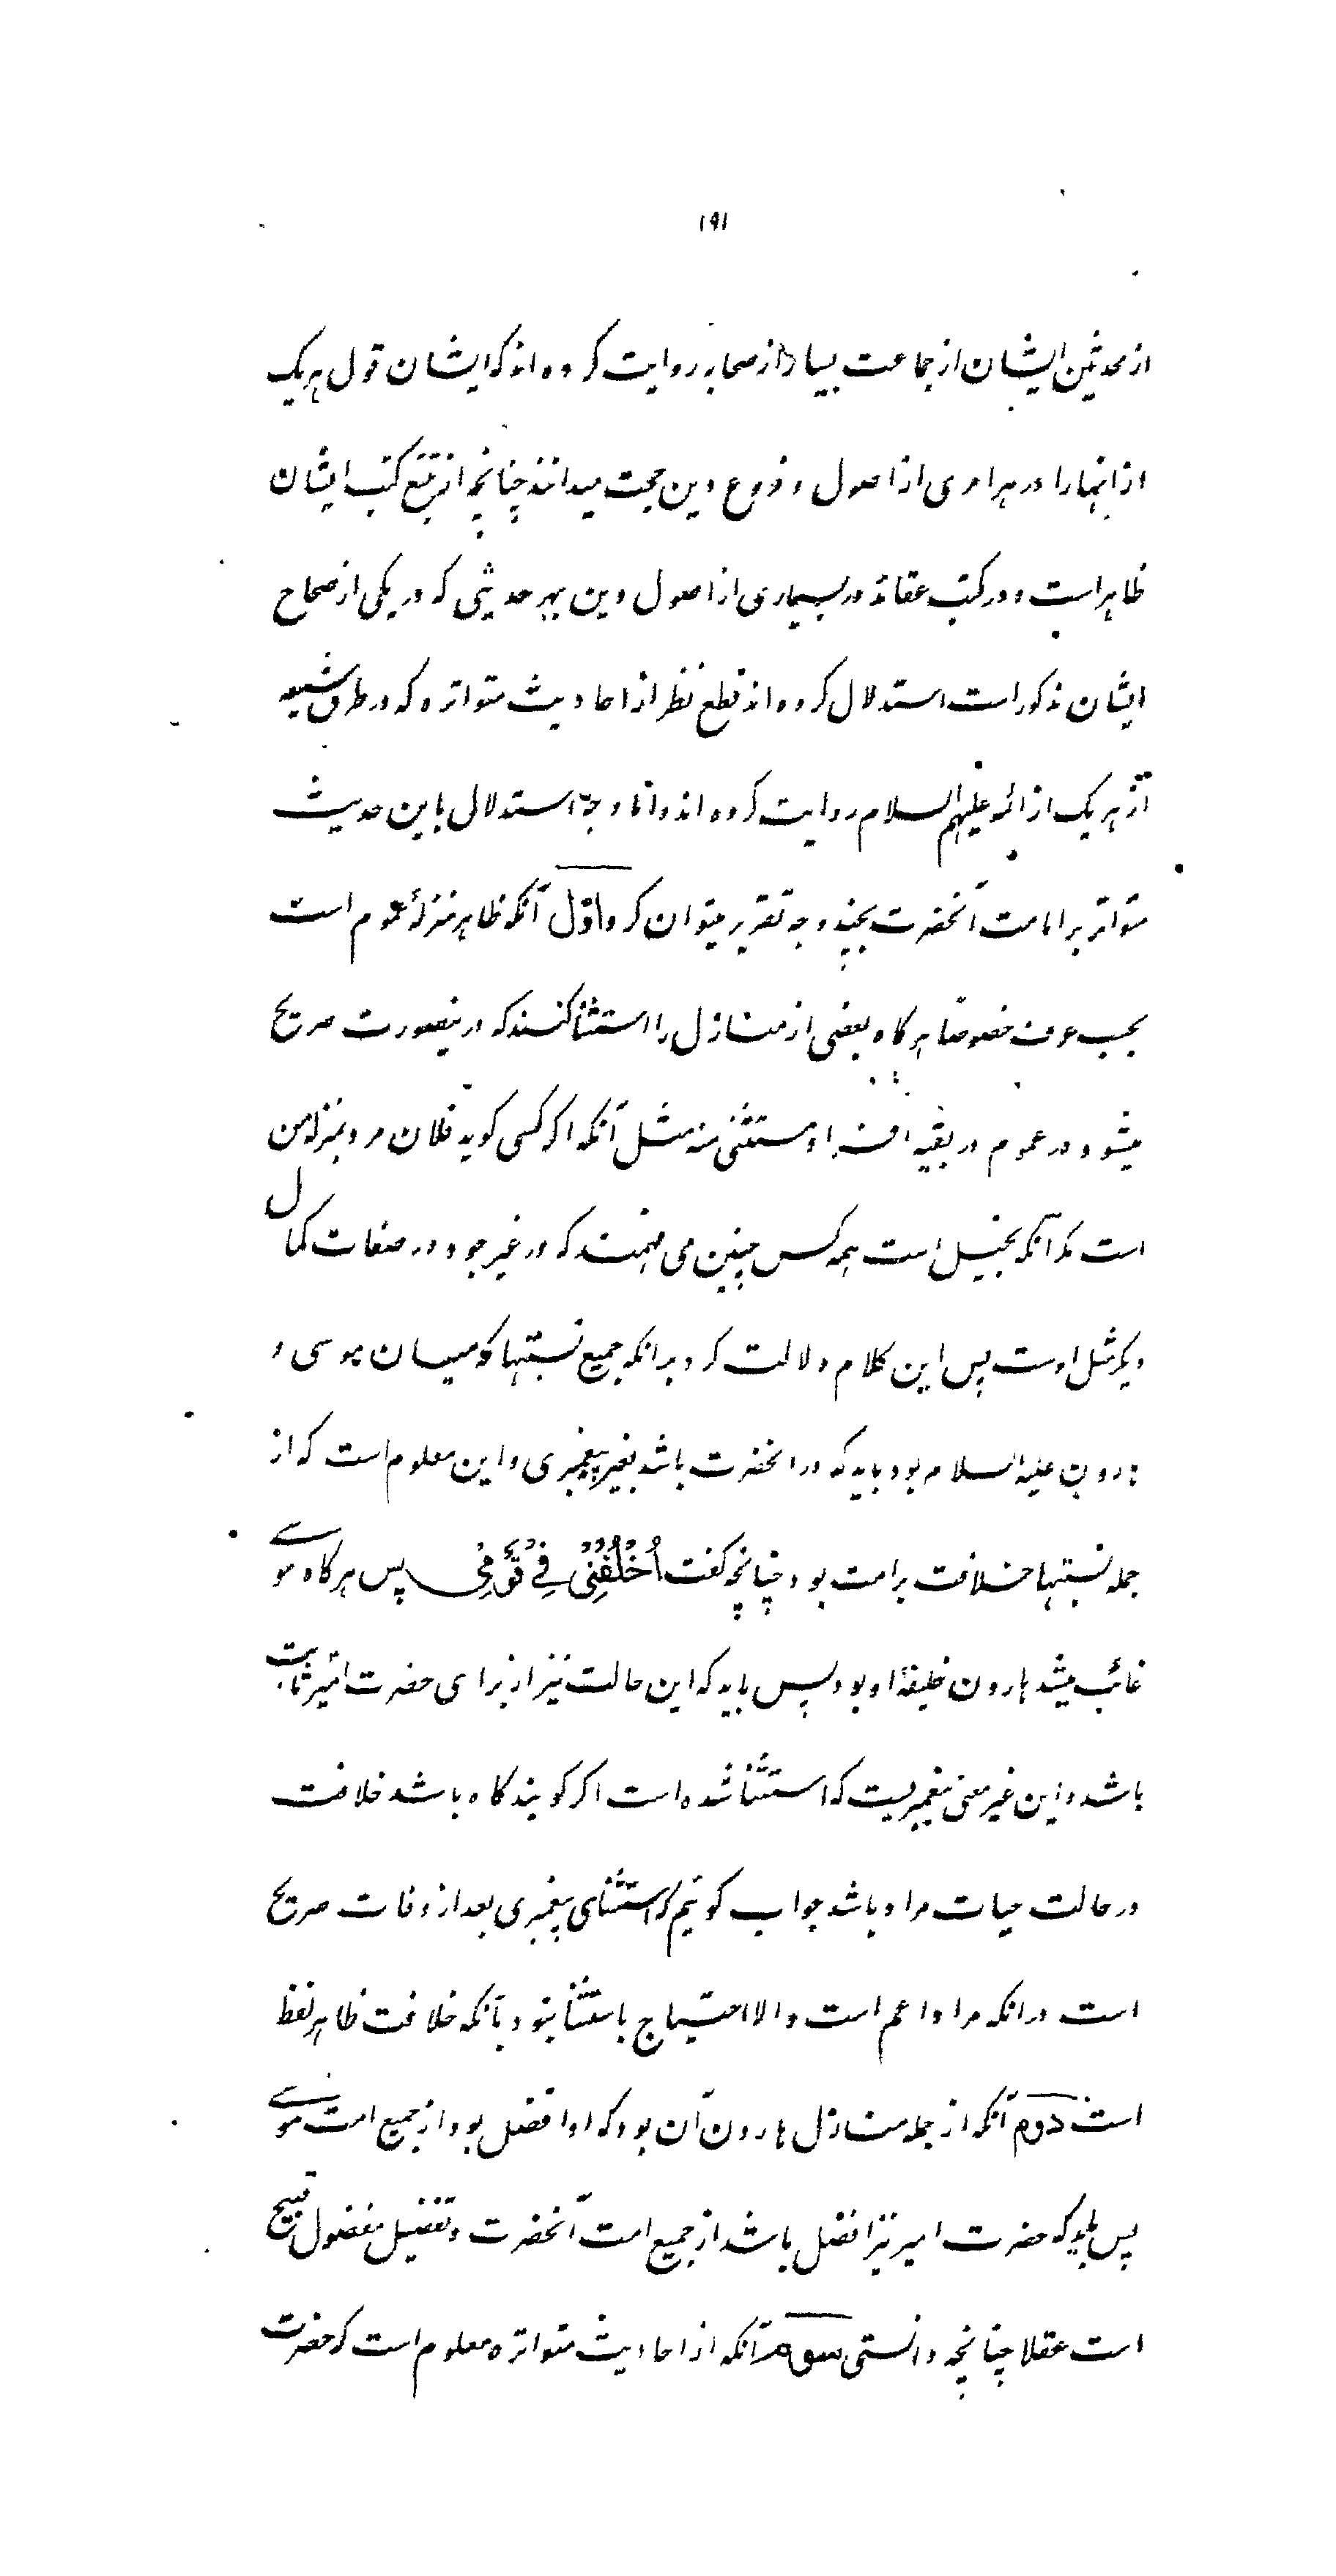 ۱۹۱
از محدثین ایشان از جماعت بسیار از صحابه روایت کرده اند که ایشان قول هریک
از اینها را در هر امری از اصول و فروع دین حجت میدانند چنانچه از تتبع کتب ایشان
ظاهر است و در کتب عقائد در بسیاری از اصول دین بهر حدیثی که در یکی از صحاح
ایشان مذکور است استدلال کرده اند قطع نظر از احادیث متواتره که در طرق شیعه
از هر یک از ائمه علیهم السلام روایت کرده اند و اما وجه استدلال باین حدیث
متواتر بر امامت آنحضرت بچند وجه تقریر میتوان کرد اوّل آنکه ظاهر منزلهٔ عموم است
بحسب عرف خصوصًا هرگاه بعضی از منازل را استثنا کنند که درینصورت صریح
میشود در عموم در بقیه افراد مستثنی منه مثل آنکه اگر کسی کوید فلان مرد بمنزلهٔ من
است مگر آنکه بخیل است همه کس چنین می فهمند که در غیر جود در صفات کمال
دیگر مثل اوست پس این کلام دلالت کرد برانکه جمیع نسبتها که میان موسی و
هارون علیه السلام بود باید که در انحضرت باشد بغیر پیغمبری و این معلوم است که از
جمله نسبتها خلافت بر امت بود چنانچه گفت اُخْلُفْنِیْ فِیْ قَوْمِیْ پس هرگاه موسے
غائب میشد هارون خلیفهٔ او بود پس باید که این حالت نیز از برای حضرت امیر ثابت
باشد و این غیر معنی پیغمبریست که استثنا شده است اگر کویند کاه باشد خلافت
در حالت حیات مراد باشد جواب کوئیم که استثنای پیغمبری بعد از وفات صریح
است در انکه مراد اعم است و الا احتیاج باستثنا نبود بآنکه خلافت ظاهر لفظ
است دوم آنکه از جمله منازل هارون آن بود که او افضل بود از جمیع امت موسے
پس باید که حضرت امیر نیز افضل باشد از جمیع امت آنحضرت و تفضیل مفضول قبیح
است عقلا چنانچه دانستی سوم آنکه از احادیث متواتره معلوم است که حضرت